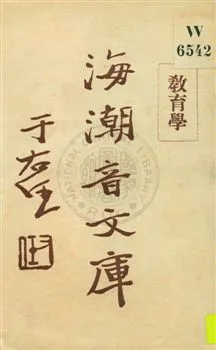 W
6542
教育學
海潮音文庫
于右任